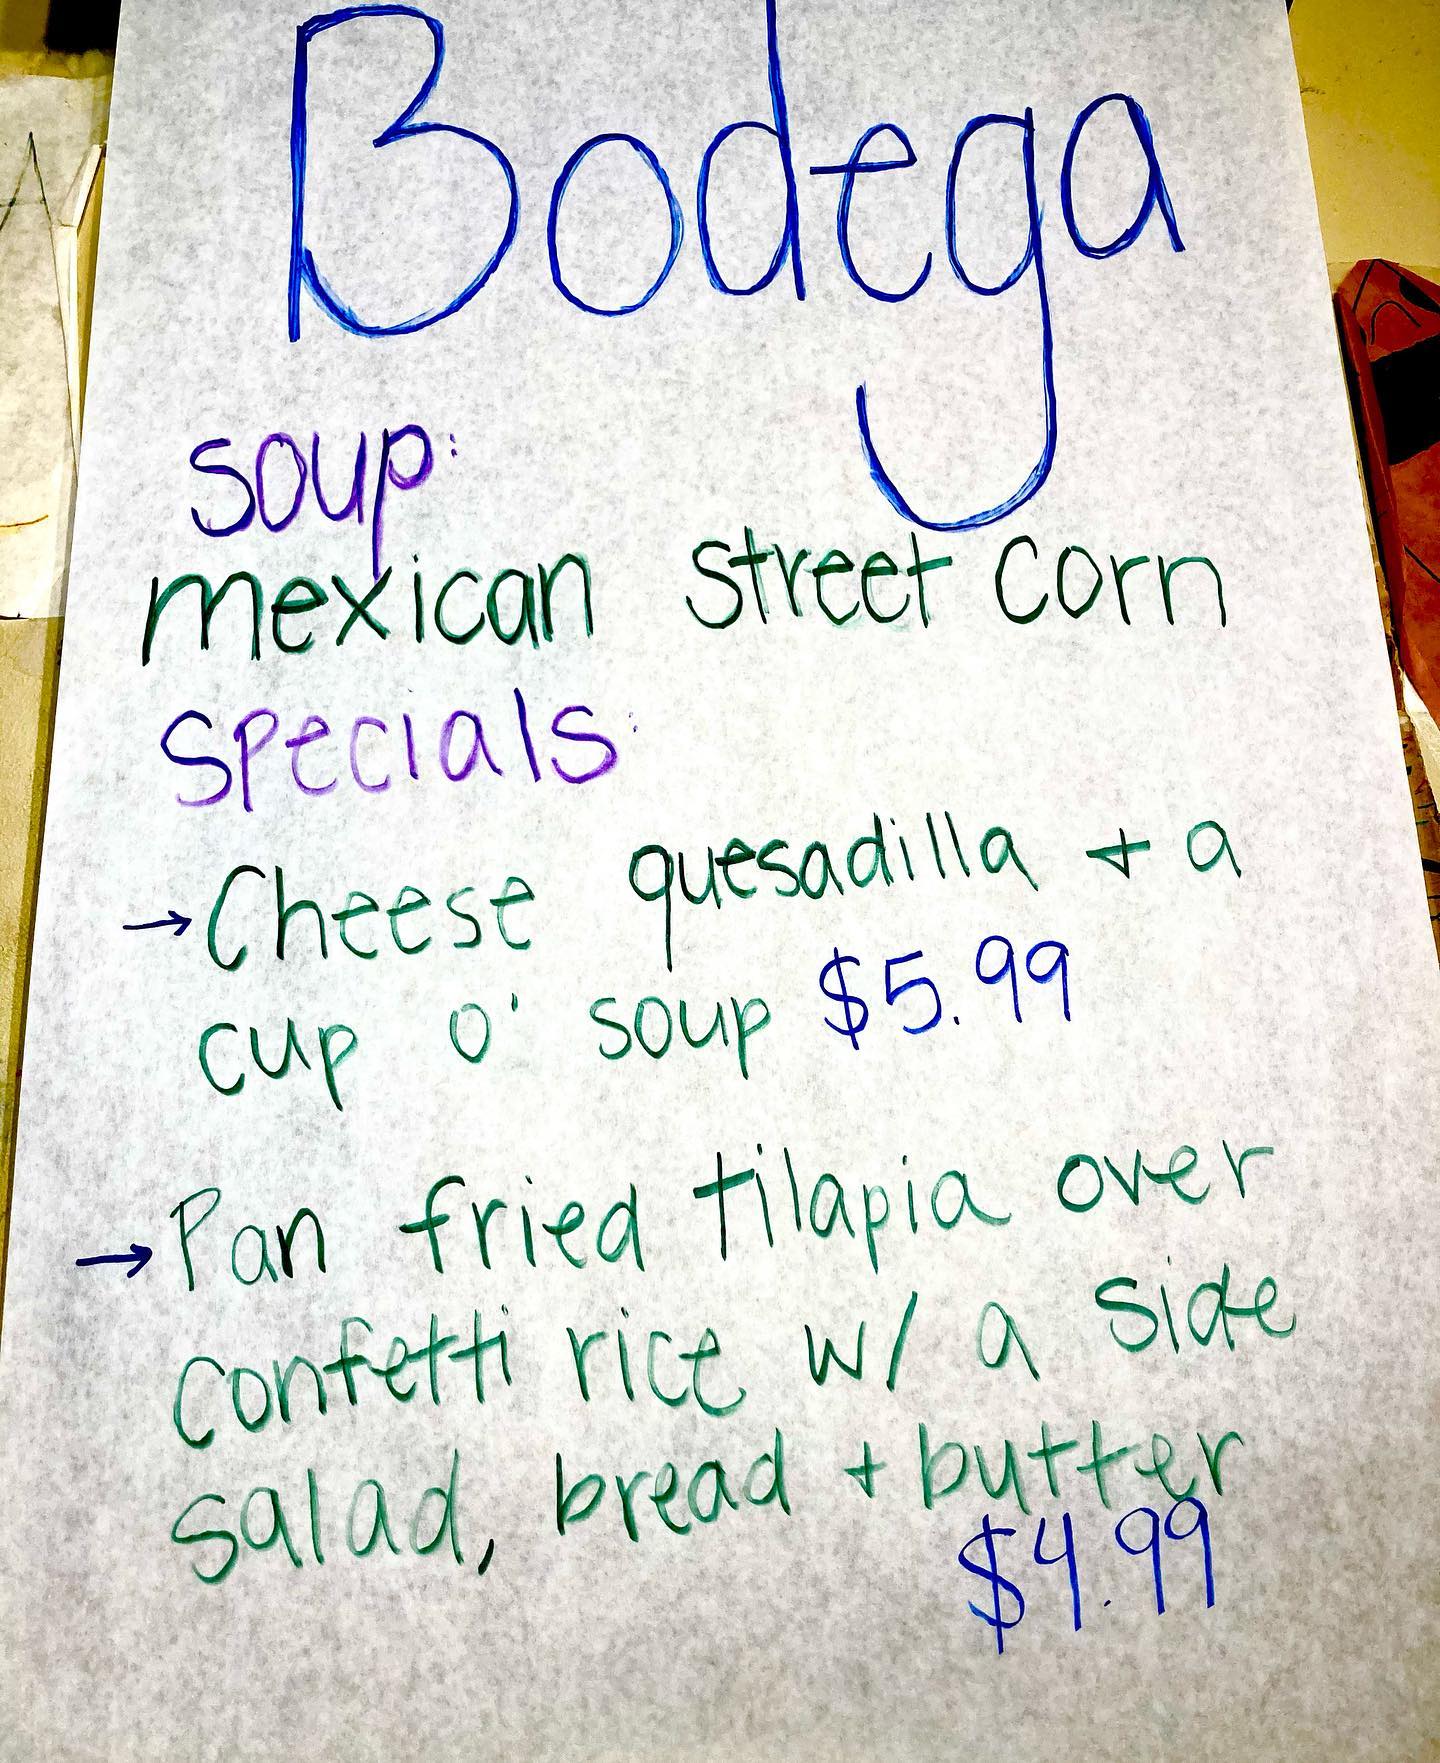 Bodega
soup:
mexican street corn
specials:
→ Cheese quesadilla + a
cup o' soup $5.99
→ Pan fried tilapia over
confetti rice w/ a side
salad, bread + butter
$4.99